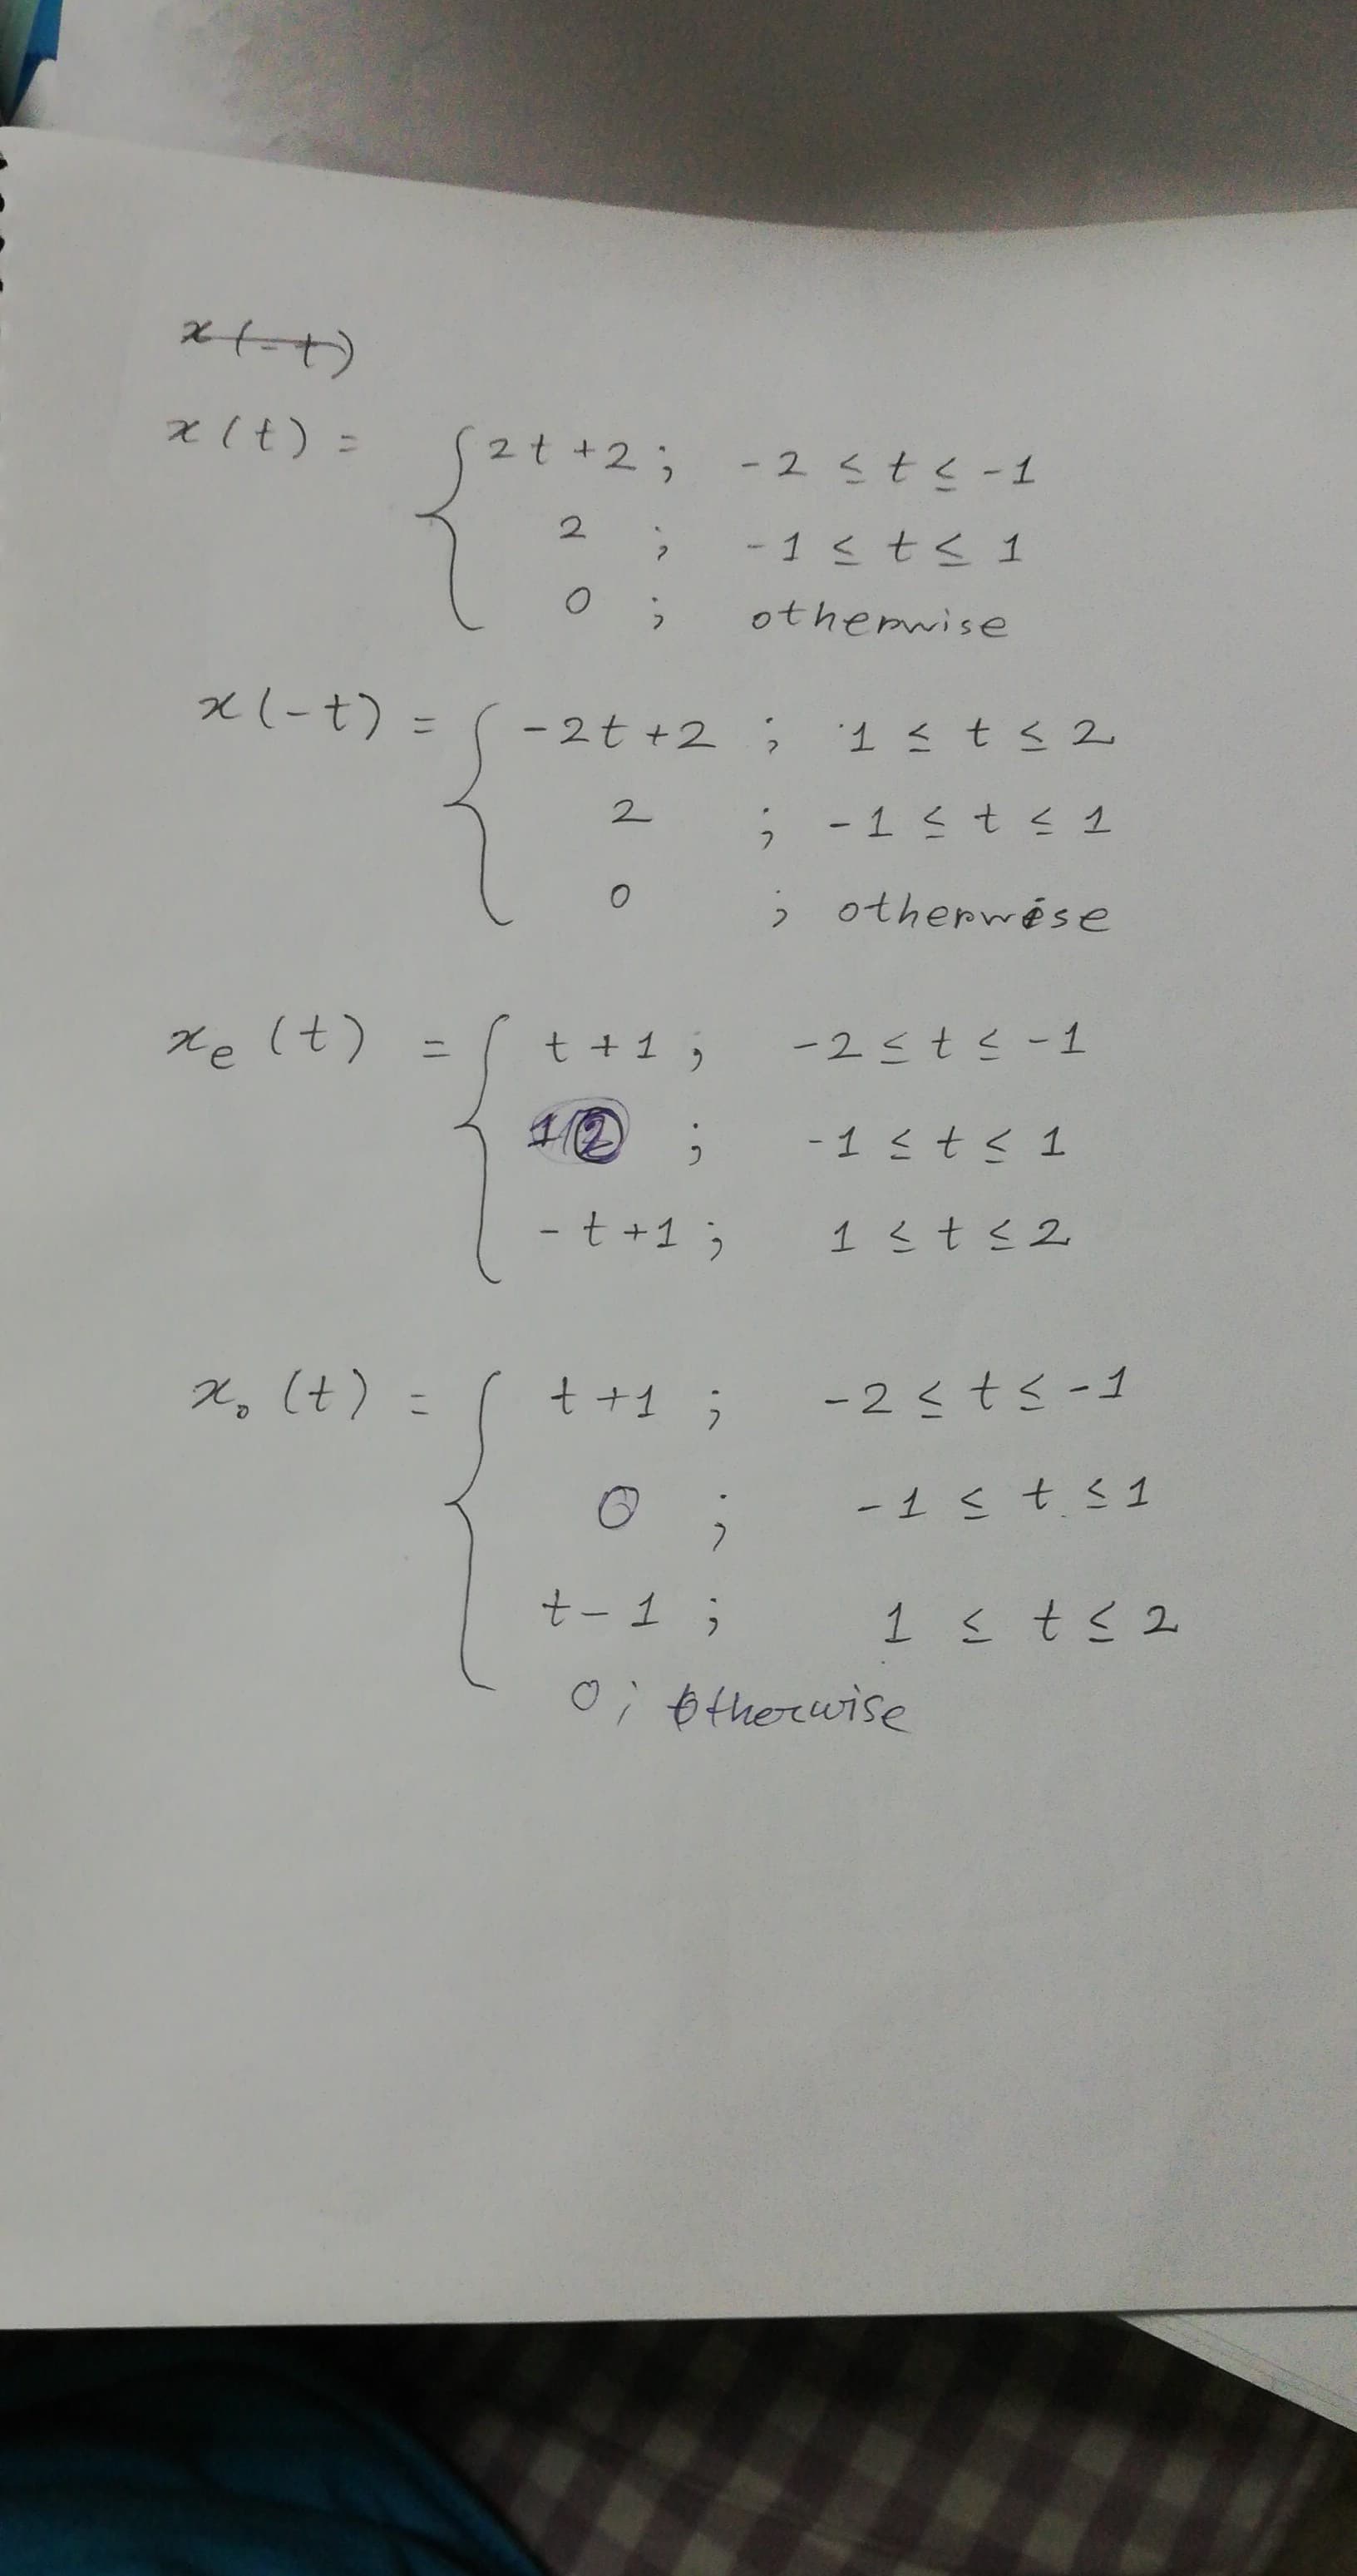 x(-t)
x(t) = { 2t+2 ; -2 ≤ t ≤ -1
2 ; -1 ≤ t ≤ 1
0 ; otherwise
x(-t) = { -2t+2 ; 1 ≤ t ≤ 2
2 ; -1 ≤ t ≤ 1
0 ; otherwise
xₑ(t) = { t+1 ; -2 ≤ t ≤ -1
2 ; -1 ≤ t ≤ 1
-t+1 ; 1 ≤ t ≤ 2
xₒ(t) = { t+1 ; -2 ≤ t ≤ -1
0 ; -1 ≤ t ≤ 1
t-1 ; 1 ≤ t ≤ 2
0 ; otherwise